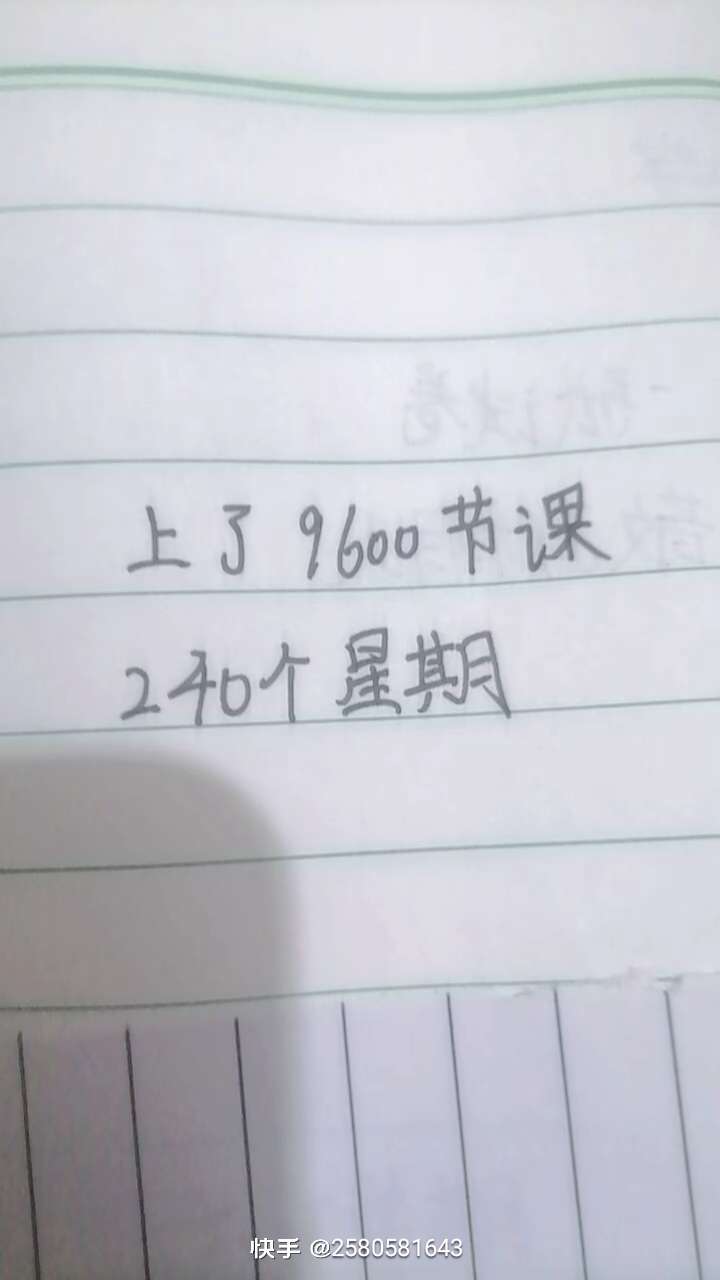 上了9600节课
240个星期
快手 @2580581643